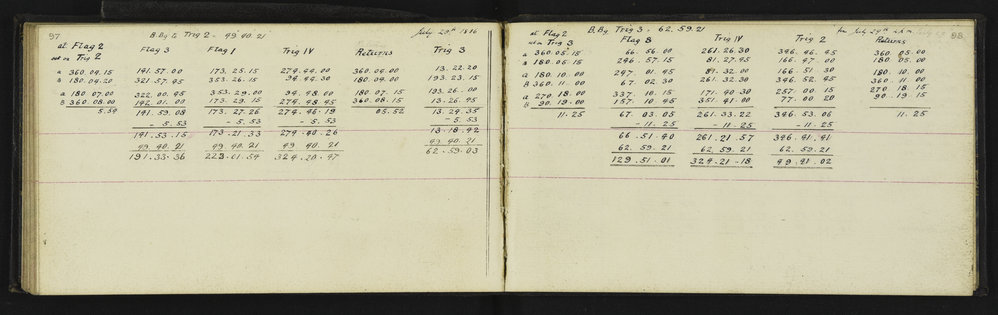 97 B.Bg to Trig 2 - 49 40 21 July 29th 1886
at Flag 2 Flag 3 Flag 1 Trig IV Returns Trig 3
set on Trig 2
A 360.04.15 141.57.00 173.25.15 274.44.00 360.04.00 13.22.20
B 180.04.20 321.57.45 353.26.15 94.44.30 180.04.00 193.23.15
A 180.07.00 322.00.45 353.29.00 94.48.00 180.07.15 193.26.00
B 360.08.00 142.01.00 173.29.15 274.48.45 360.08.15 13.26.45
5.50 141.59.08 173.27.26 274.46.19 05.52 13.24.35
- 5.53 - 5.53 - 5.53 - 5.53
141.53.15 173.21.33 274.40.26 13.18.42
49.40.21 49.40.21 49.40.21 49.40.21
191.33.36 223.01.54 324.20.47 62.59.03
B.Bg Trig 3 - 62.59.21 for July 29th 98
at Flag 2 Flag B Trig IV Trig 2 Returns
set on Trig 3
A 360.05.15 66.56.00 261.26.30 346.46.45 360.05.00
B 180.05.15 246.57.15 81.27.45 166.47.00 180.05.00
A 180.10.00 247.01.45 81.32.00 166.51.30 180.10.00
B 360.11.00 67.02.30 261.32.30 346.52.45 360.11.00
A 270.18.00 337.10.15 171.40.30 257.00.15 270.18.15
B 90.19.00 157.10.45 351.41.00 77.00.20 90.19.15
11.25 67.03.05 261.33.22 346.53.06 11.25
- 11.25 - 11.25 - 11.25
66.51.40 261.21.57 346.41.41
62.59.21 62.59.21 62.59.21
129.51.01 324.21.18 49.41.02